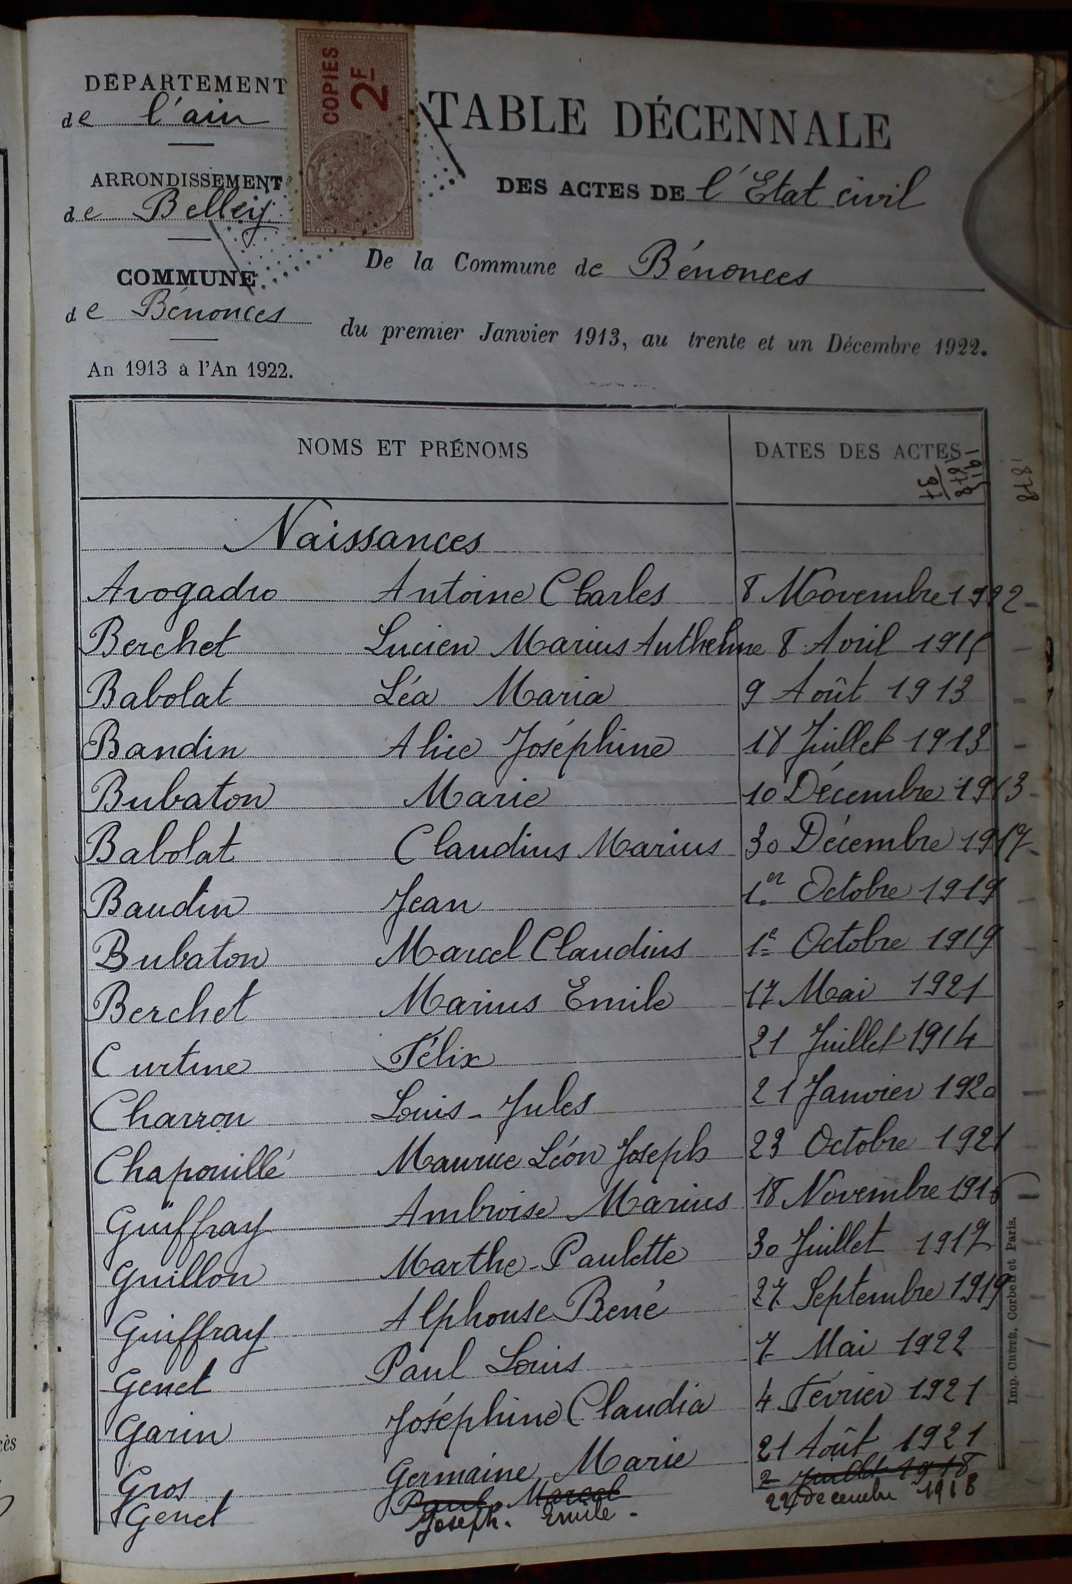 DÉPARTEMENT
de l'ain
ARRONDISSEMENT
de Belley
COMMUNE
de Bénonces
An 1913 à l'An 1922.
COPIES
2F
TABLE DÉCENNALE
DES ACTES DE l'Etat civil
De la Commune de Bénonces
du premier Janvier 1913, au trente et un Décembre 1922.
NOMS ET PRÉNOMS DATES DES ACTES
1878
Naissances
Avogadro Antoine Charles 8 Novembre 1922
Berchet Lucien Marius Anthelme 8 Avril 1915
Babolat Léa Maria 9 Août 1913
Bandin Alice Joséphine 18 Juillet 1913
Bubaton Marie 10 Décembre 1913
Babolat Claudius Marius 30 Décembre 1917
Baudin Jean 1er Octobre 1919
Bubaton Marcel Claudius 1e Octobre 1919
Berchet Marius Emile 17 Mai 1921
Curtine Félix 21 Juillet 1914
Charron Louis-Jules 21 Janvier 1920
Chapouillé Maurice Léon Joseph 23 Octobre 1921
Guiffray Ambroise Marius 18 Novembre
Guillon Marthe-Paulette 30 Juillet
Guiffray Alphonse René 27 Septembre 1919
Genet Paul Louis 7 Mai 1922
Garin Joséphine Claudia 4 Février 1921
Gros Germaine Marie 21 Août 1921
Paul Marcel 2 Juillet 1918
Genet Joseph. Emile. 22 Décembre 1918
Imp. Chers, Corbeil et Paris.